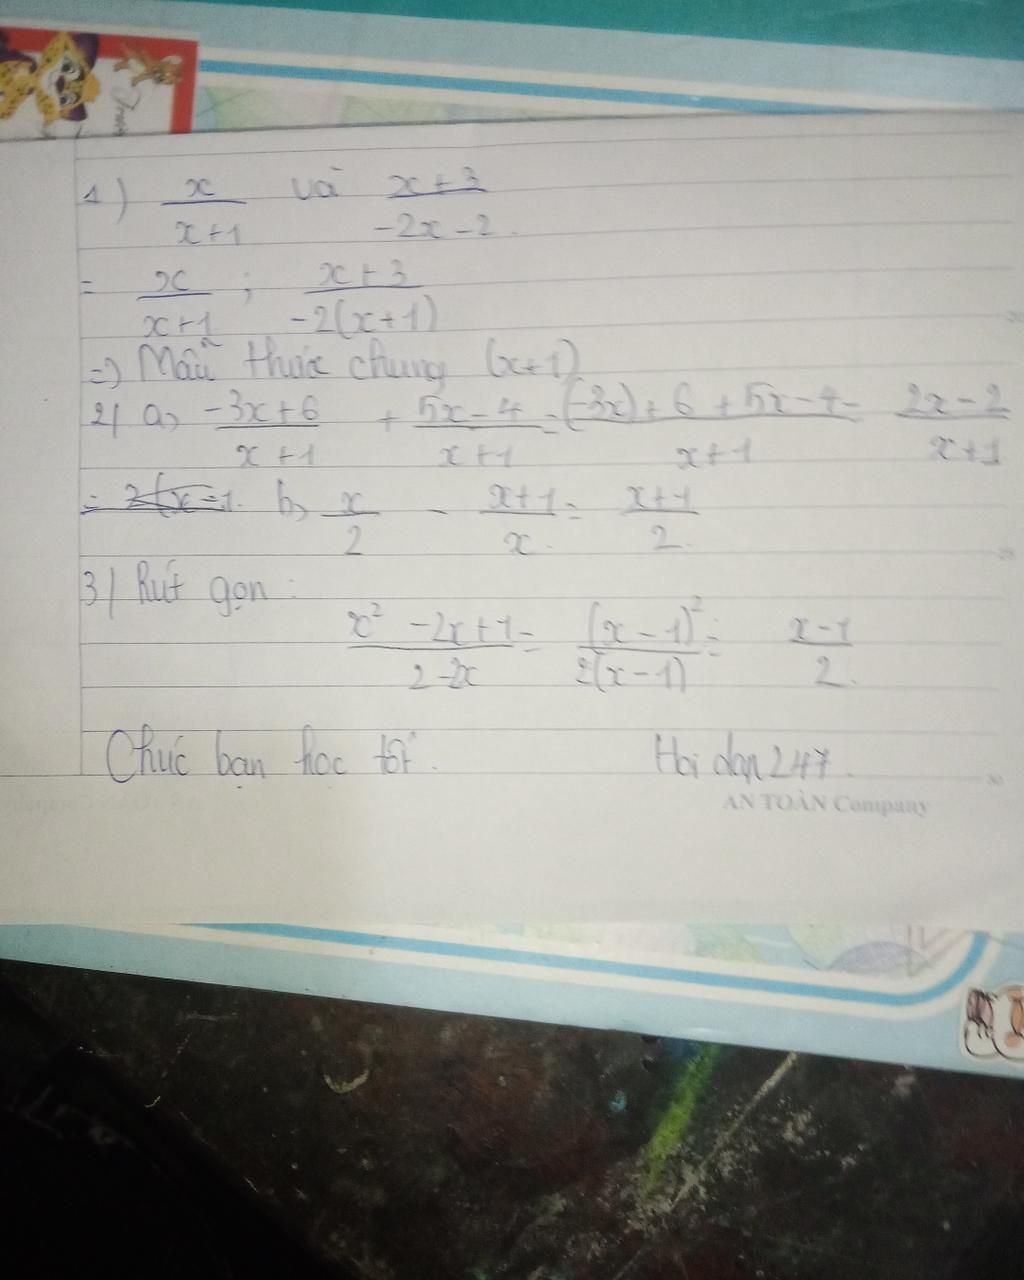 1) x/(x+1) và (x+3)/(-2x-2).
= x/(x+1) ; (x+3)/(-2(x+1))
=> Mẫu thức chung (x+1)
2/ a, (-3x+6)/(x+1) + (5x-4)/(x+1) = ((-3x)+6+5x-4)/(x+1) = (2x-2)/(x+1)
b, x/2 - (x+1)/x. = (x+1)/2.
3/ Rút gọn :
(x²-2x+1)/(2-2x) = (x-1)²/(2(x-1)) = (x-1)/2.
Chúc bạn học tốt. Hoi dan 247.
AN TOÀN Company